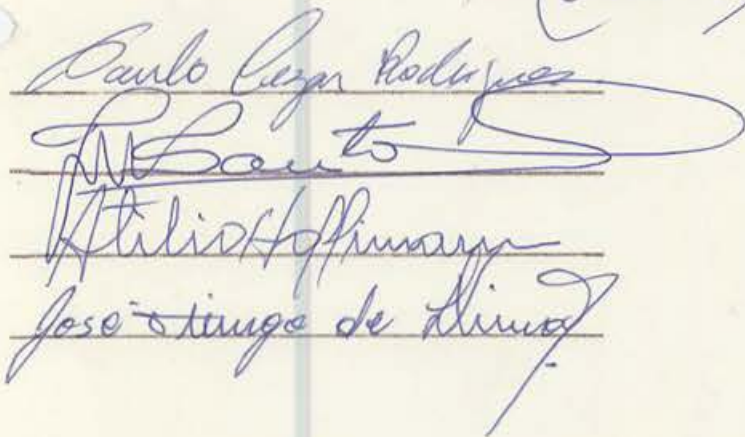 Paulo Cezar Rodrigues
Santos
Atilio Hoffimann
José de Lima